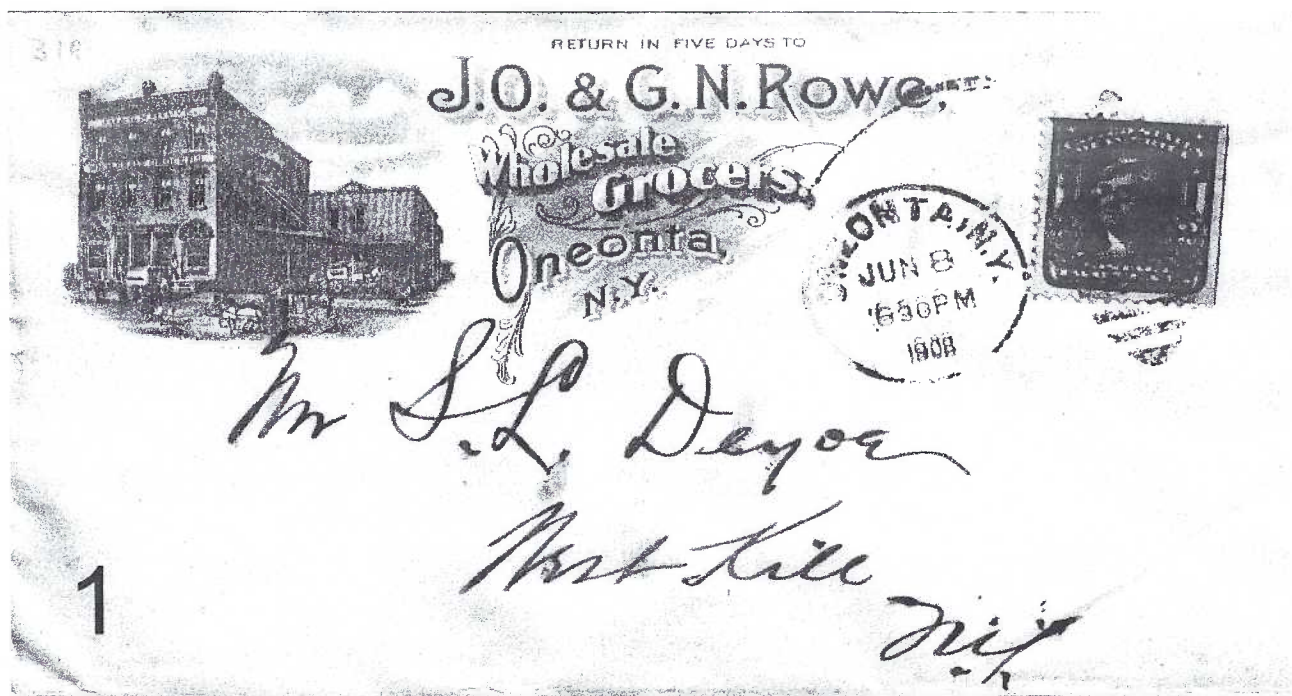 318
RETURN IN FIVE DAYS TO
J.O. & G.N. Rowe,
Wholesale
Grocers,
Oneonta,
N.Y.
ONEONTA, N.Y.
JUN 8
630PM
1908
Mr S.L. Deyoe
West Kill
N.Y.
1